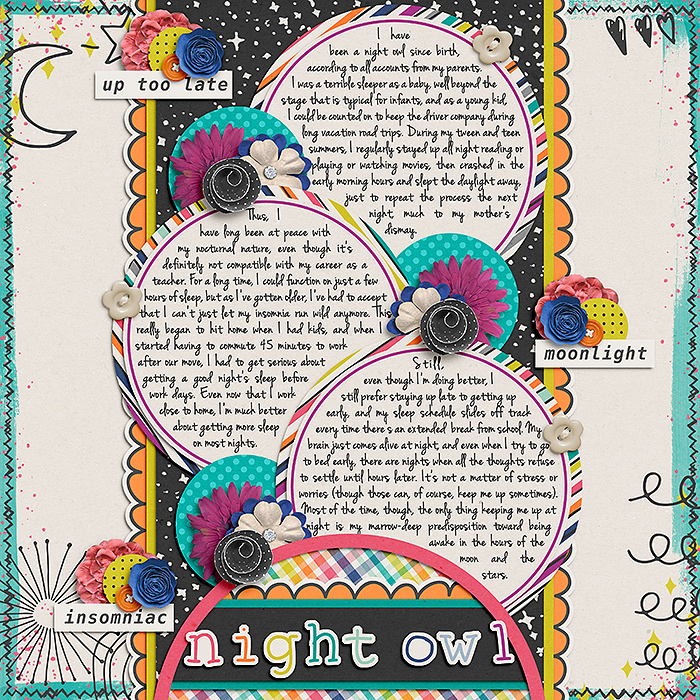 up too late
I have
been a night owl since birth,
according to all accounts from my parents.
I was a terrible sleeper as a baby, well beyond the
stage that is typical for infants, and as a young kid,
I could be counted on to keep the driver company during
long vacation road trips. During my tween and teen
summers, I regularly stayed up all night reading or
playing or watching movies, then crashed in the
early morning hours and slept the daylight away,
just to repeat the process the next
night, much to my mother's
dismay.
Thus, I
have long been at peace with
my nocturnal nature, even though it's
definitely not compatible with my career as a
teacher. For a long time, I could function on just a few
hours of sleep, but as I've gotten older, I've had to accept
that I can't just let my insomnia run wild anymore. This
really began to hit home when I had kids, and when I
started having to commute 45 minutes to work
after our move, I had to get serious about
getting a good night's sleep before
work days. Even now that I work
close to home, I'm much better
about getting more sleep
on most nights.
moonlight
Still,
even though I'm doing better, I
still prefer staying up late to getting up
early, and my sleep schedule slides off track
every time there's an extended break from school. My
brain just comes alive at night, and even when I try to go
to bed early, there are nights when all the thoughts refuse
to settle until hours later. It's not a matter of stress or
worries (though those can, of course, keep me up sometimes).
Most of the time, though, the only thing keeping me up at
night is my marrow-deep predisposition toward being
awake in the hours of the
moon and the
stars.
insomniac
night owl